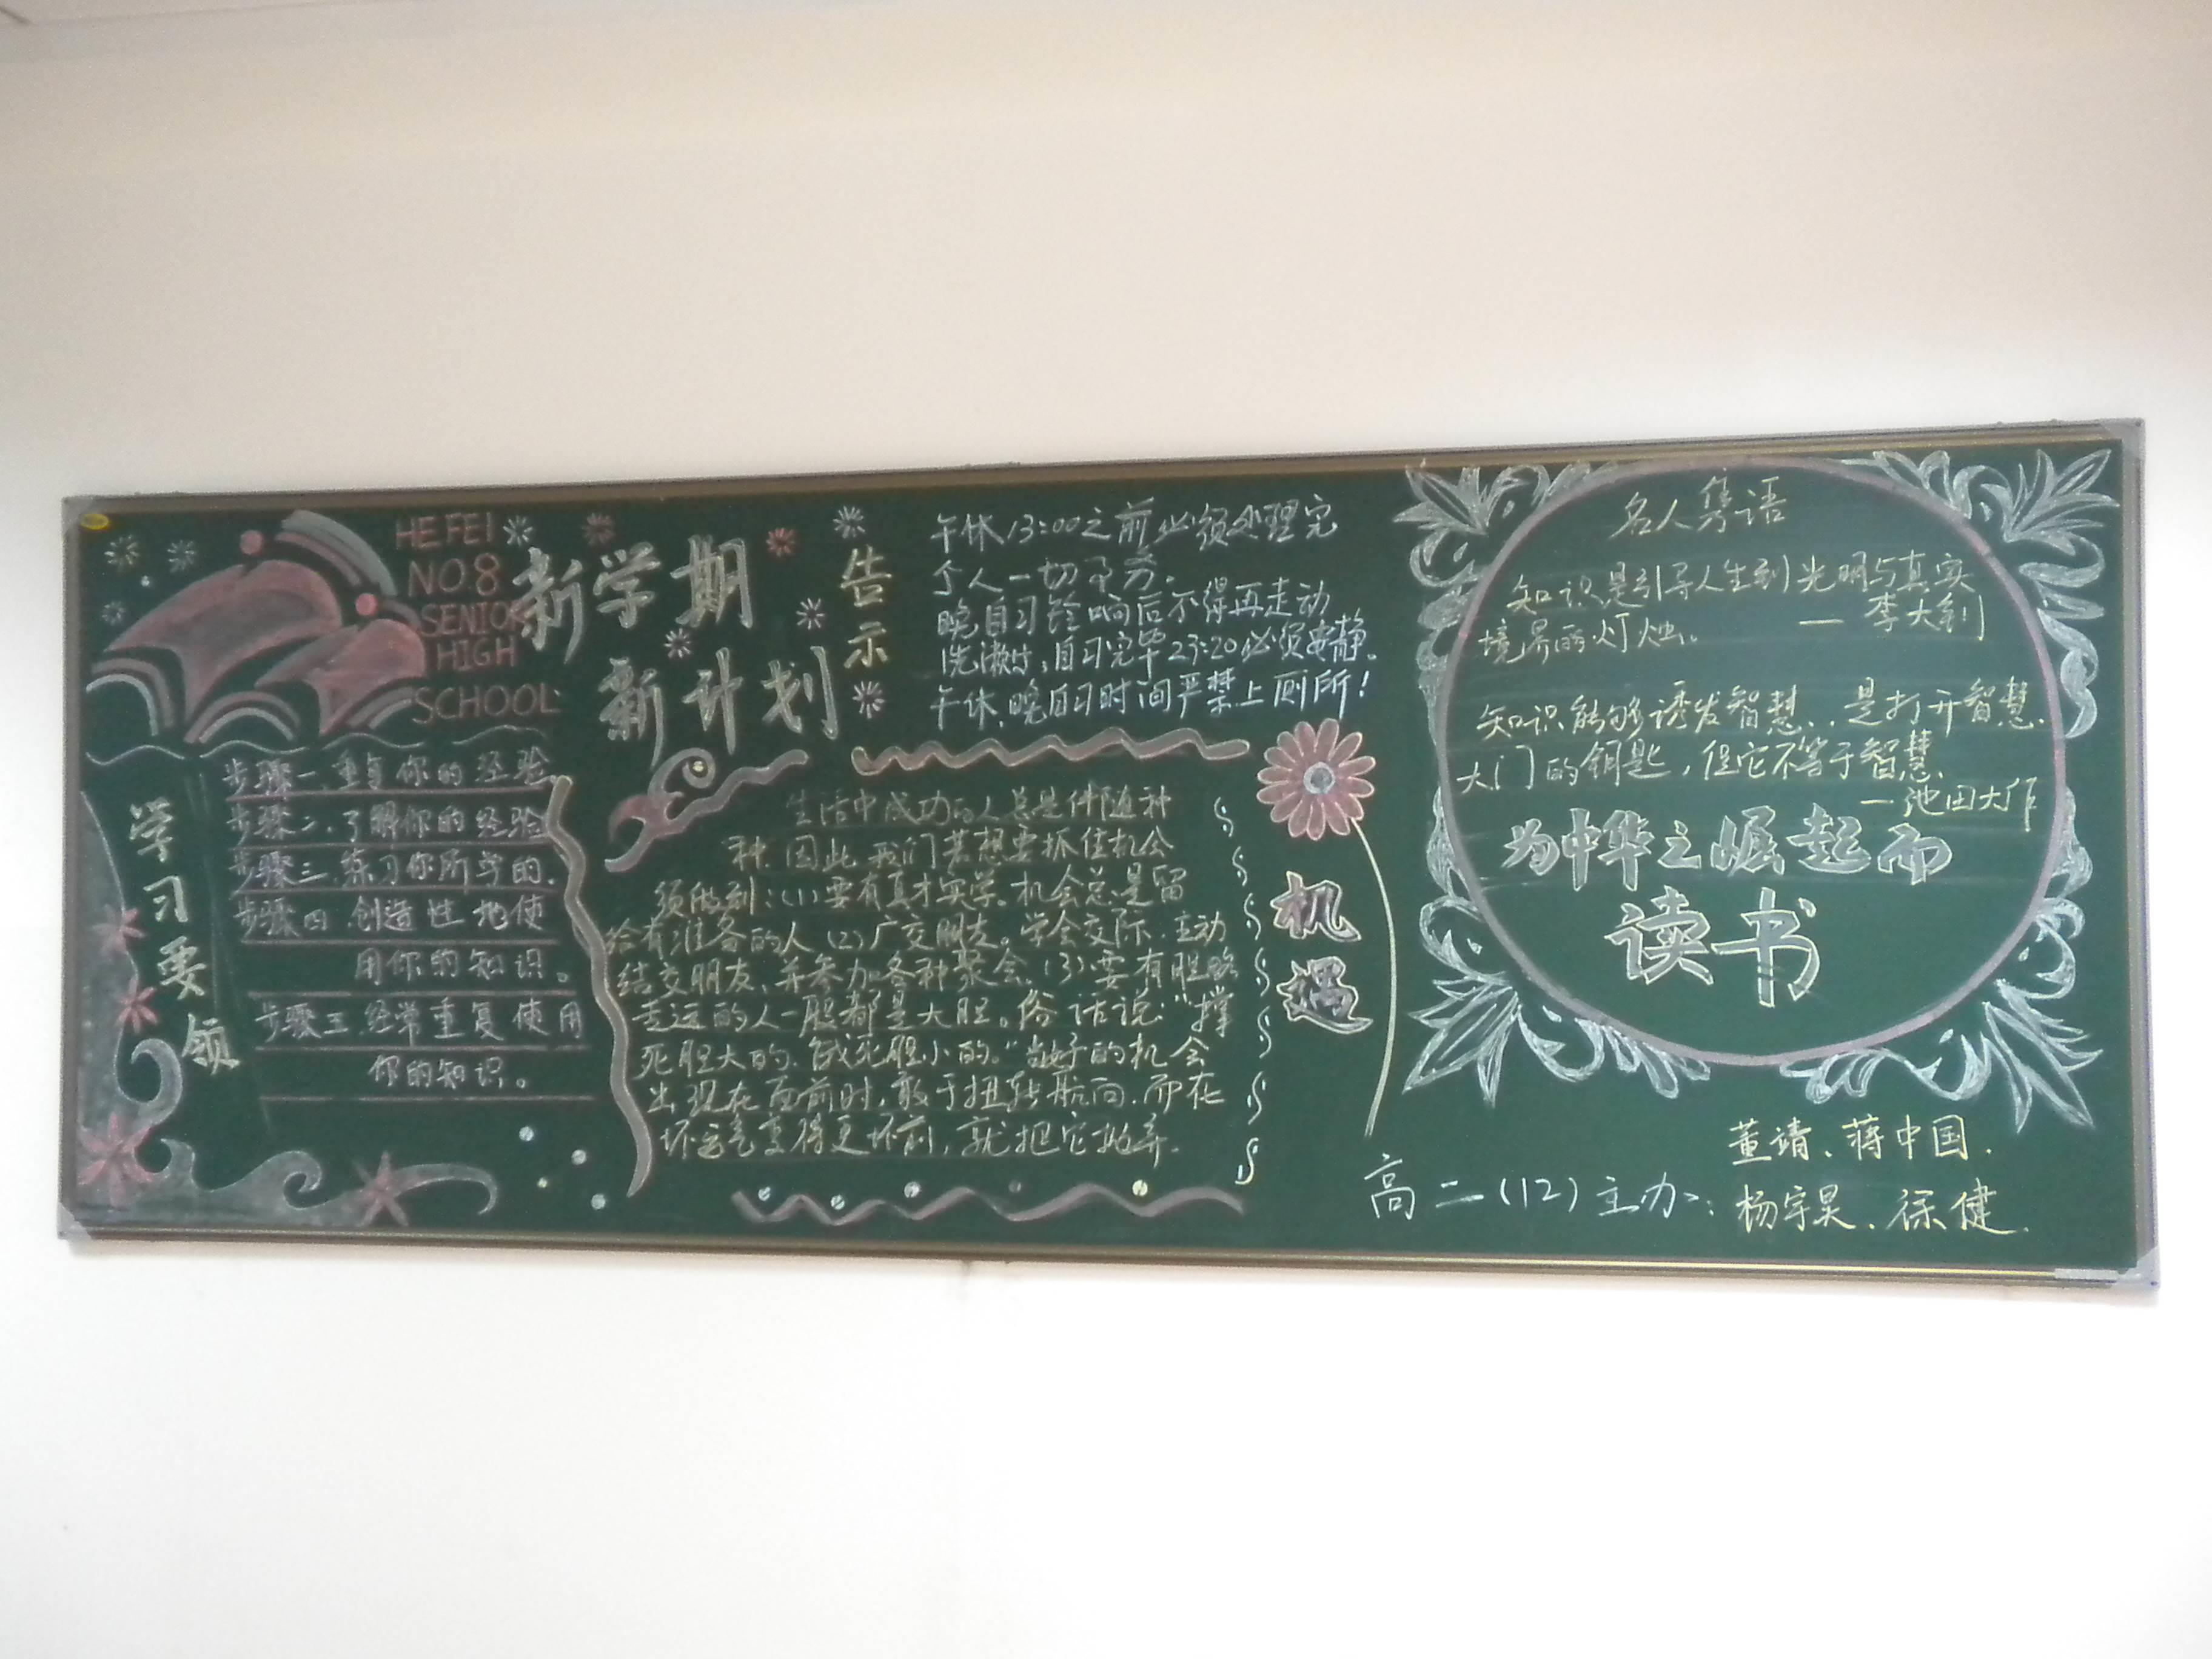 HEFEI
NO.8
SENIOR
HIGH
SCHOOL
新学期
新计划
告示
午休13:00之前必须处理完
个人一切事务.
晚自习铃响后不得再走动
洗漱,自习完毕23:20必须安静.
午休,晚自习时间严禁上厕所!
学习要领
步骤一.重复你的经验
步骤二.了解你的经验
步骤三.练习你所学的.
步骤四.创造性地使
用你的知识。
步骤五.经常重复使用
你的知识。
生活中成功的人总是伴随
种.因此,我们若想要抓住机会
须做到:(1)要有真才实学.机会总是留
给有准备的人(2)广交朋友。学会交际.主动
结交朋友,并参加各种聚会.(3)要有胆略
走运的人一般都是大胆。俗话说:"撑
死胆大的.饿死胆小的。"当好的机会
出现在面前时,敢于扭转航向.而在
坏运气变得更坏前,就把它抛弃.
机遇
名人隽语
知识是引导人生到光明与真实
境界的灯烛。
—李大钊
知识能够诱发智慧..是打开智慧
大门的钥匙,但它不等于智慧.
—池田大作
为中华之崛起而
读书
高二(12)主办:
董靖、蒋中国.
杨宇昊、徐健.